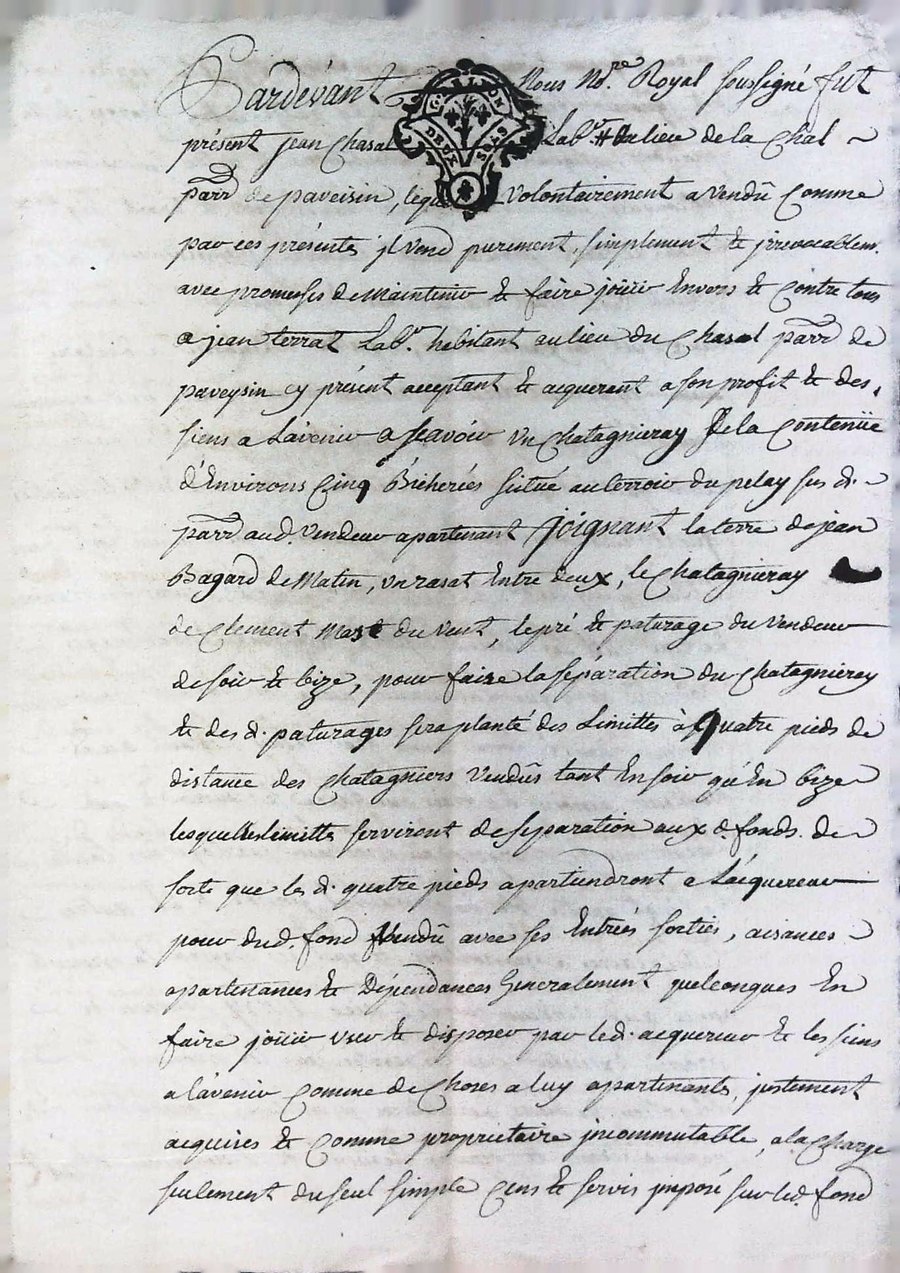 Pardevant Nous No.re Royal soussigné fut
présent jean Chasal Lab.r au lieu de la Chal
parr de paveisin, lequel volontairement a vendû Comme
par ces présentes jl vend purement, simplement & jrrevocablem.
avec promesses de Maintenir & faire joüir Envers & Contre tous
a jean terrat Lab.r hebitant au lieu du Chasal parr de
paveysin cy présent acceptant & acquerent a son profit & des
siens a L'avenir a scavoir Un Chatagnieray de la Contenüe
d'Environs Cinq Bicherées scitué au terroir du pelay sus d.
parr aud. Vendeur apartenant Joignant la terre de jean
Bagard de Matin, un rasat Entre deux, le Chatagnieray
de Clement du Vent, le pré & paturage du Vendeur
de soir & bize, pour faire la séparation du Chatagnierey
& des d. paturages sera planté des Limittes à Quatre pieds de
distance des Chatagniers Vendûs tant En soir qu'En bize
lesquelles limitte serviront de separation aux d. fonds. de
sorte que les d. quatre pieds apartiendront a L'aiquereur
pour dud. fond Vendû avec ses Entrées sorties, aisances
apartenances & Dépendances Generalement quelconques En
faire joüir user & disposer par le d. acquereur & les siens
a l'avenir Comme de Choses a luy apartenants, justement
acquises & Comme propriétaire jncommutable, a la Charge
seulement du seul simple Cens & servis jmposé sur led. fond